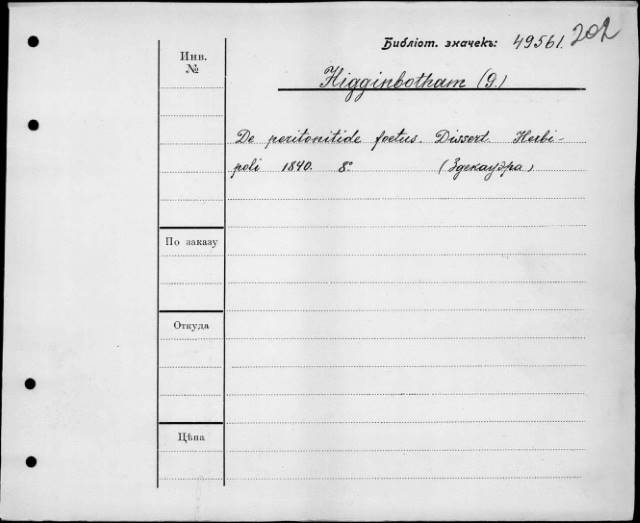 Библіот. значекъ: 49561. 202
Инв.
№
Higginbotham (G.)
De peritonitide foetus. Dissert. Herbi-
poli 1840. 8° (Здекауэра)
По заказу
Откуда
Цѣна